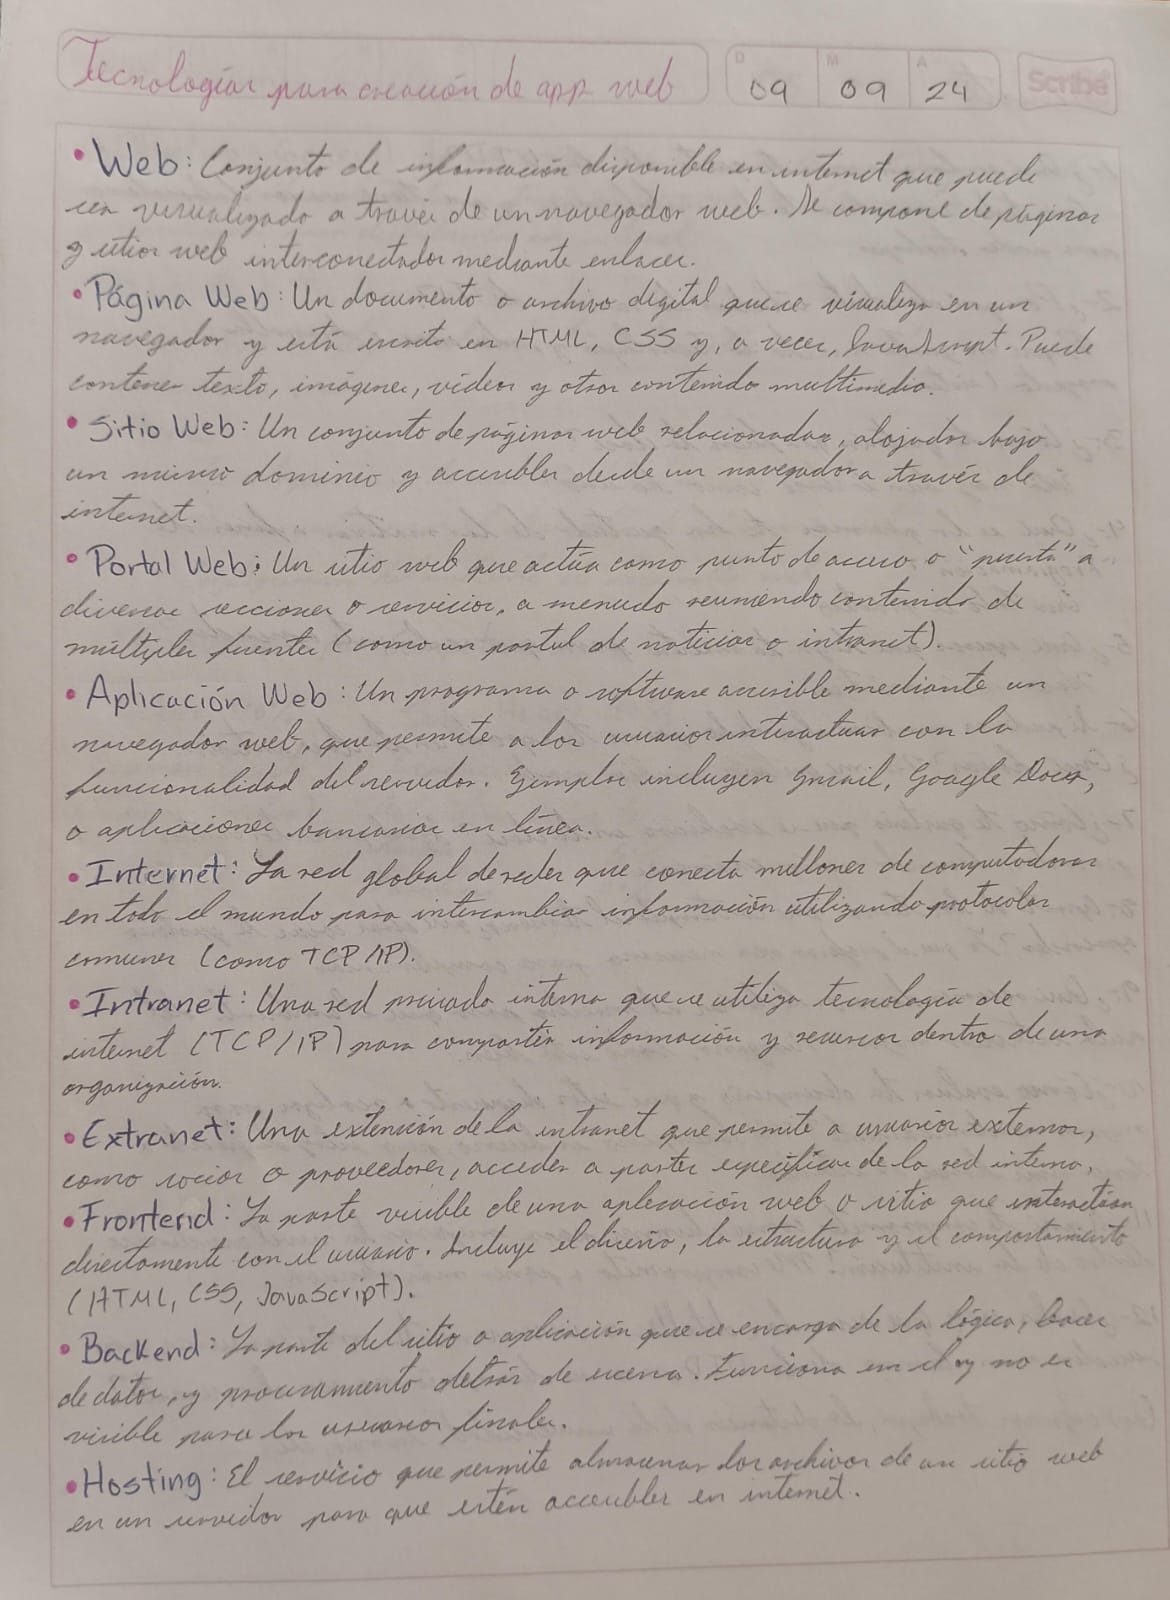 Tecnologías para creación de app web
D M A
09 09 24
Scribe
• Web: Conjunto de información disponible en internet que puede
ser visualizado a través de un navegador web. Se compone de páginas
y sitios web interconectados mediante enlaces.
• Página Web: Un documento o archivo digital que se visualiza en un
navegador y está escrito en HTML, CSS y, a veces, JavaScript. Puede
contener texto, imágenes, videos y otros contenido multimedia.
• Sitio Web: Un conjunto de páginas web relacionadas, alojadas bajo
un mismo dominio y accesibles desde un navegador a través de
internet.
• Portal Web: Un sitio web que actúa como punto de acceso o "puerta" a
diversas secciones o servicios, a menudo reuniendo contenido de
múltiples fuentes (como un portal de noticias o intranet).
• Aplicación Web: Un programa o software accesible mediante un
navegador web, que permite a los usuarios interactuar con la
funcionalidad del servidor. Ejemplos incluyen Gmail, Google Docs,
o aplicaciones bancarias en línea.
• Internet: La red global de redes que conecta millones de computadoras
en todo el mundo para intercambiar información utilizando protocolos
comunes (como TCP/IP).
• Intranet: Una red privada interna que se utiliza tecnología de
internet (TCP/IP) para compartir información y recursos dentro de una
organización.
• Extranet: Una extensión de la intranet que permite a usuarios externos,
como socios o proveedores, acceder a partes específicas de la red interna.
• Frontend: La parte visible de una aplicación web o sitio que interactúan
directamente con el usuario. Incluye el diseño, la estructura y el comportamiento
(HTML, CSS, JavaScript).
• Backend: La parte del sitio o aplicación que se encarga de la lógica, bases
de datos, y procesamiento detrás de escena. Funciona en el y no es
visible para los usuarios finales.
• Hosting: El servicio que permite almacenar los archivos de un sitio web
en un servidor para que estén accesibles en internet.